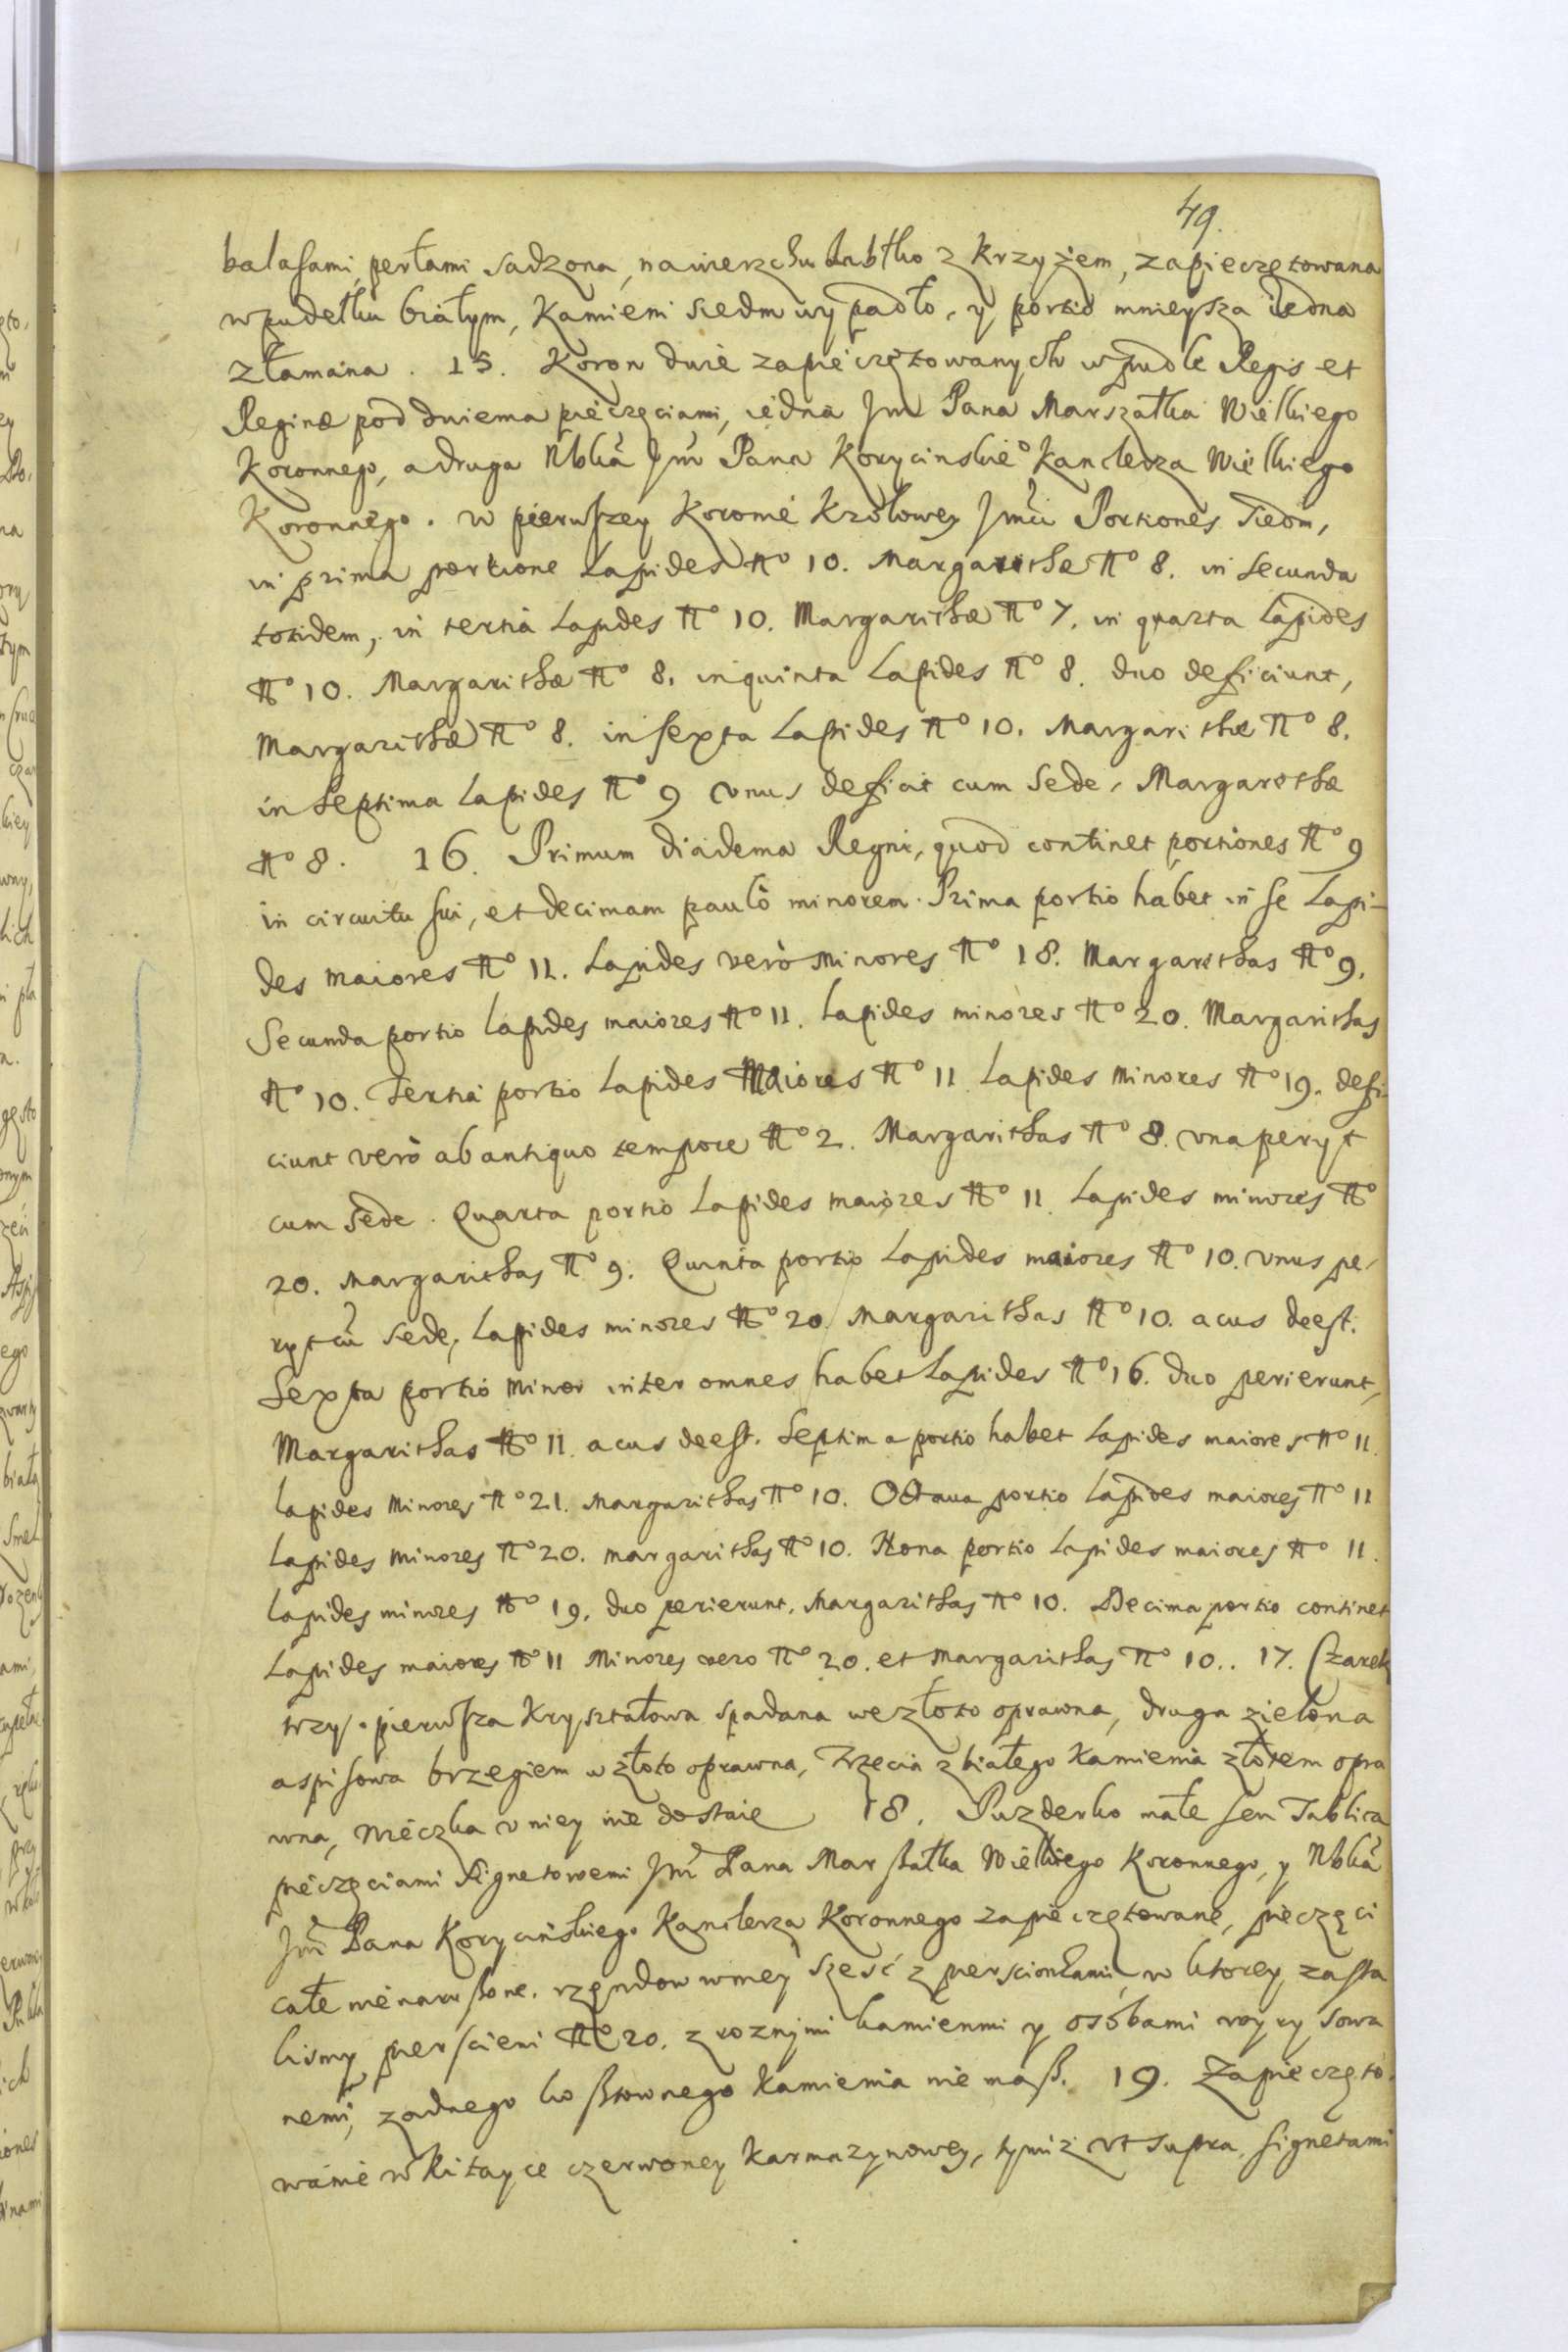 49.
balasami, perłami sadzona, nawierzchu Iabłko z krzyżem, zapieczętowana
w pudełku białym, kamieni siedm wypadło, y portio mnieysza iedna
złamana. 15. Koron dwie zapieczętowanych w pudle Regis et
Reginæ pod dwiema pieczęciami, iedna Jm Pana Marszałka Wielkiego
Koronnego, a druga Nbka Jm Pana Korycinskie⁰ Kanclerza Wielkiego
Koronnego. w pierwszey Koronie Krolowey Jmci Portiones siedm,
in prima portione Lapides Nº 10. Margarithæ Nº 8. in secunda
totidem, in tertia Lapides Nº 10. Margarithæ Nº 7. in quarta Lapides
Nº 10. Margarithæ Nº 8. in quinta Lapides Nº 8. duo deficiunt,
Margarithæ Nº 8. in sexta Lapides Nº 10. Margarithæ Nº 8.
in septima Lapides Nº 9 vnus deficit cum sede, Margarithæ
Nº 8. 16. Primum diadema Regni, quod continet portiones Nº 9
in circuitu sui, et decimam paulò minorem. Prima portio habet in se Lapi-
des maiores Nº 11. Lapides verò minores Nº 18. Margarithas Nº 9.
Secunda portio Lapides maiores Nº 11. Lapides minores Nº 20. Margarithas
Nº 10. Tertia portio Lapides Maiores Nº 11 Lapides minores Nº 19. defi-
ciunt verò ab antiquo tempore Nº 2. Margarithas Nº 8. vna peryt
cum sede. Quarta portio Lapides maiores Nº 11 Lapides minores Nº
20. Margarithas Nº 9. Quinta portio Lapides maiores Nº 10. vnus pe-
ryt cũ sede, Lapides minores Nº 20 Margarithas Nº 10. acus deest.
Sexta portio minor inter omnes habet Lapides Nº 16. duo perierunt,
Margarithas Nº 11 acus deest. Septima portio habet Lapides maiores Nº 11.
Lapides minores Nº 21. Margarithas Nº 10. Octaua portio Lapides maiores Nº 11
Lapides minores Nº 20. margarithas Nº 10. Nona portio Lapides maiores Nº 11.
Lapides minores Nº 19. duo perierunt, Margarithas Nº 10. Decima portio continet
Lapides maiores Nº 11 Minores vero Nº 20. et margarithas Nº 10.. 17. Czarek
trzy. pierwsza Krysztatowa spadana we złoto oprawna, druga zielona
aspisowa brzegiem w złoto oprawna, Trzecia z białego kamienia złotem opra
wna, wieczka v niey nie dostaie 18. Puzderko małe seu Tablica
pieczęciami Signetowemi Jm Pana Marszałka Wielkiego Koronnego, y Nbka
Jm Pana Korycińskiego Kanclerza Koronnego zapieczętowane, pieczęci
całe nienaruszone. rzędow w niey sześć z pierscionkami, w ktorey zasta
lismy pierscieni Nº 20. z roznymi kamienmi y osóbami wyrysowa
nemi, zadnego kosztownego kamienia nie masz. 19. Zapieczęto-
wanie w kitayce czerwoney karmazynowey, tymiż vt supra signetami